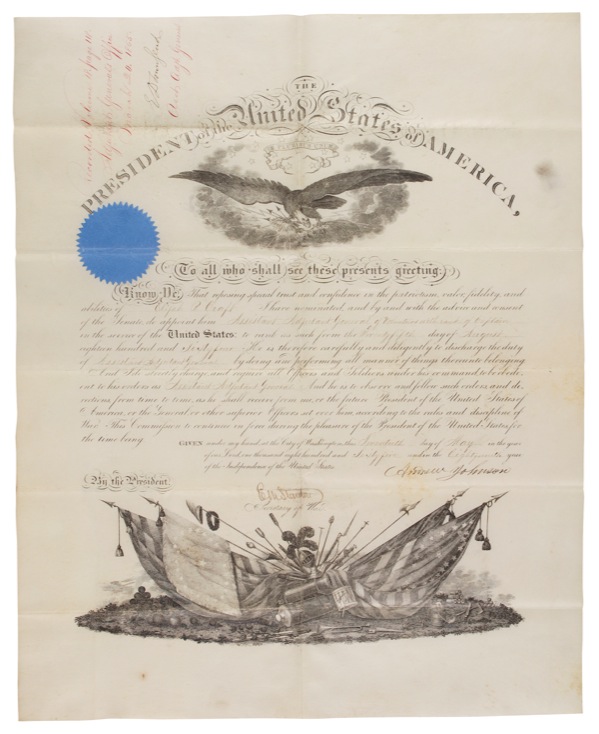 THE
PRESIDENT of the United States of AMERICA,
To all who shall see these presents greeting:
Know Ye, That reposing special trust and confidence in the patriotism, valor, fidelity, and
abilities of I have nominated, and by and with the advice and consent
of the Senate, do appoint him Assistant Adjutant General of Volunteers with rank of Captain
in the service of the United States: to rank as such from the day of August
eighteen hundred and He is therefore carefully and diligently to discharge the duty
of Assistant Adjutant General by doing and performing all manner of things thereunto belonging.
And I do strictly charge and require all Officers and Soldiers under his command to be obedi-
ent to his orders as Assistant Adjutant General. And he is to observe and follow such orders and di-
rections, from time to time, as he shall receive from me, or the future President of the United States of
America, or the General or other superior Officers set over him, according to the rules and discipline of
War. This Commission to continue in force during the pleasure of the President of the United States for
the time being.
GIVEN under my hand at the City of Washington, this day of May in the year
of our Lord one thousand eight hundred and Sixty five and in the year
of the Independence of the United States.
By the President
Andrew Johnson
Secretary of War.